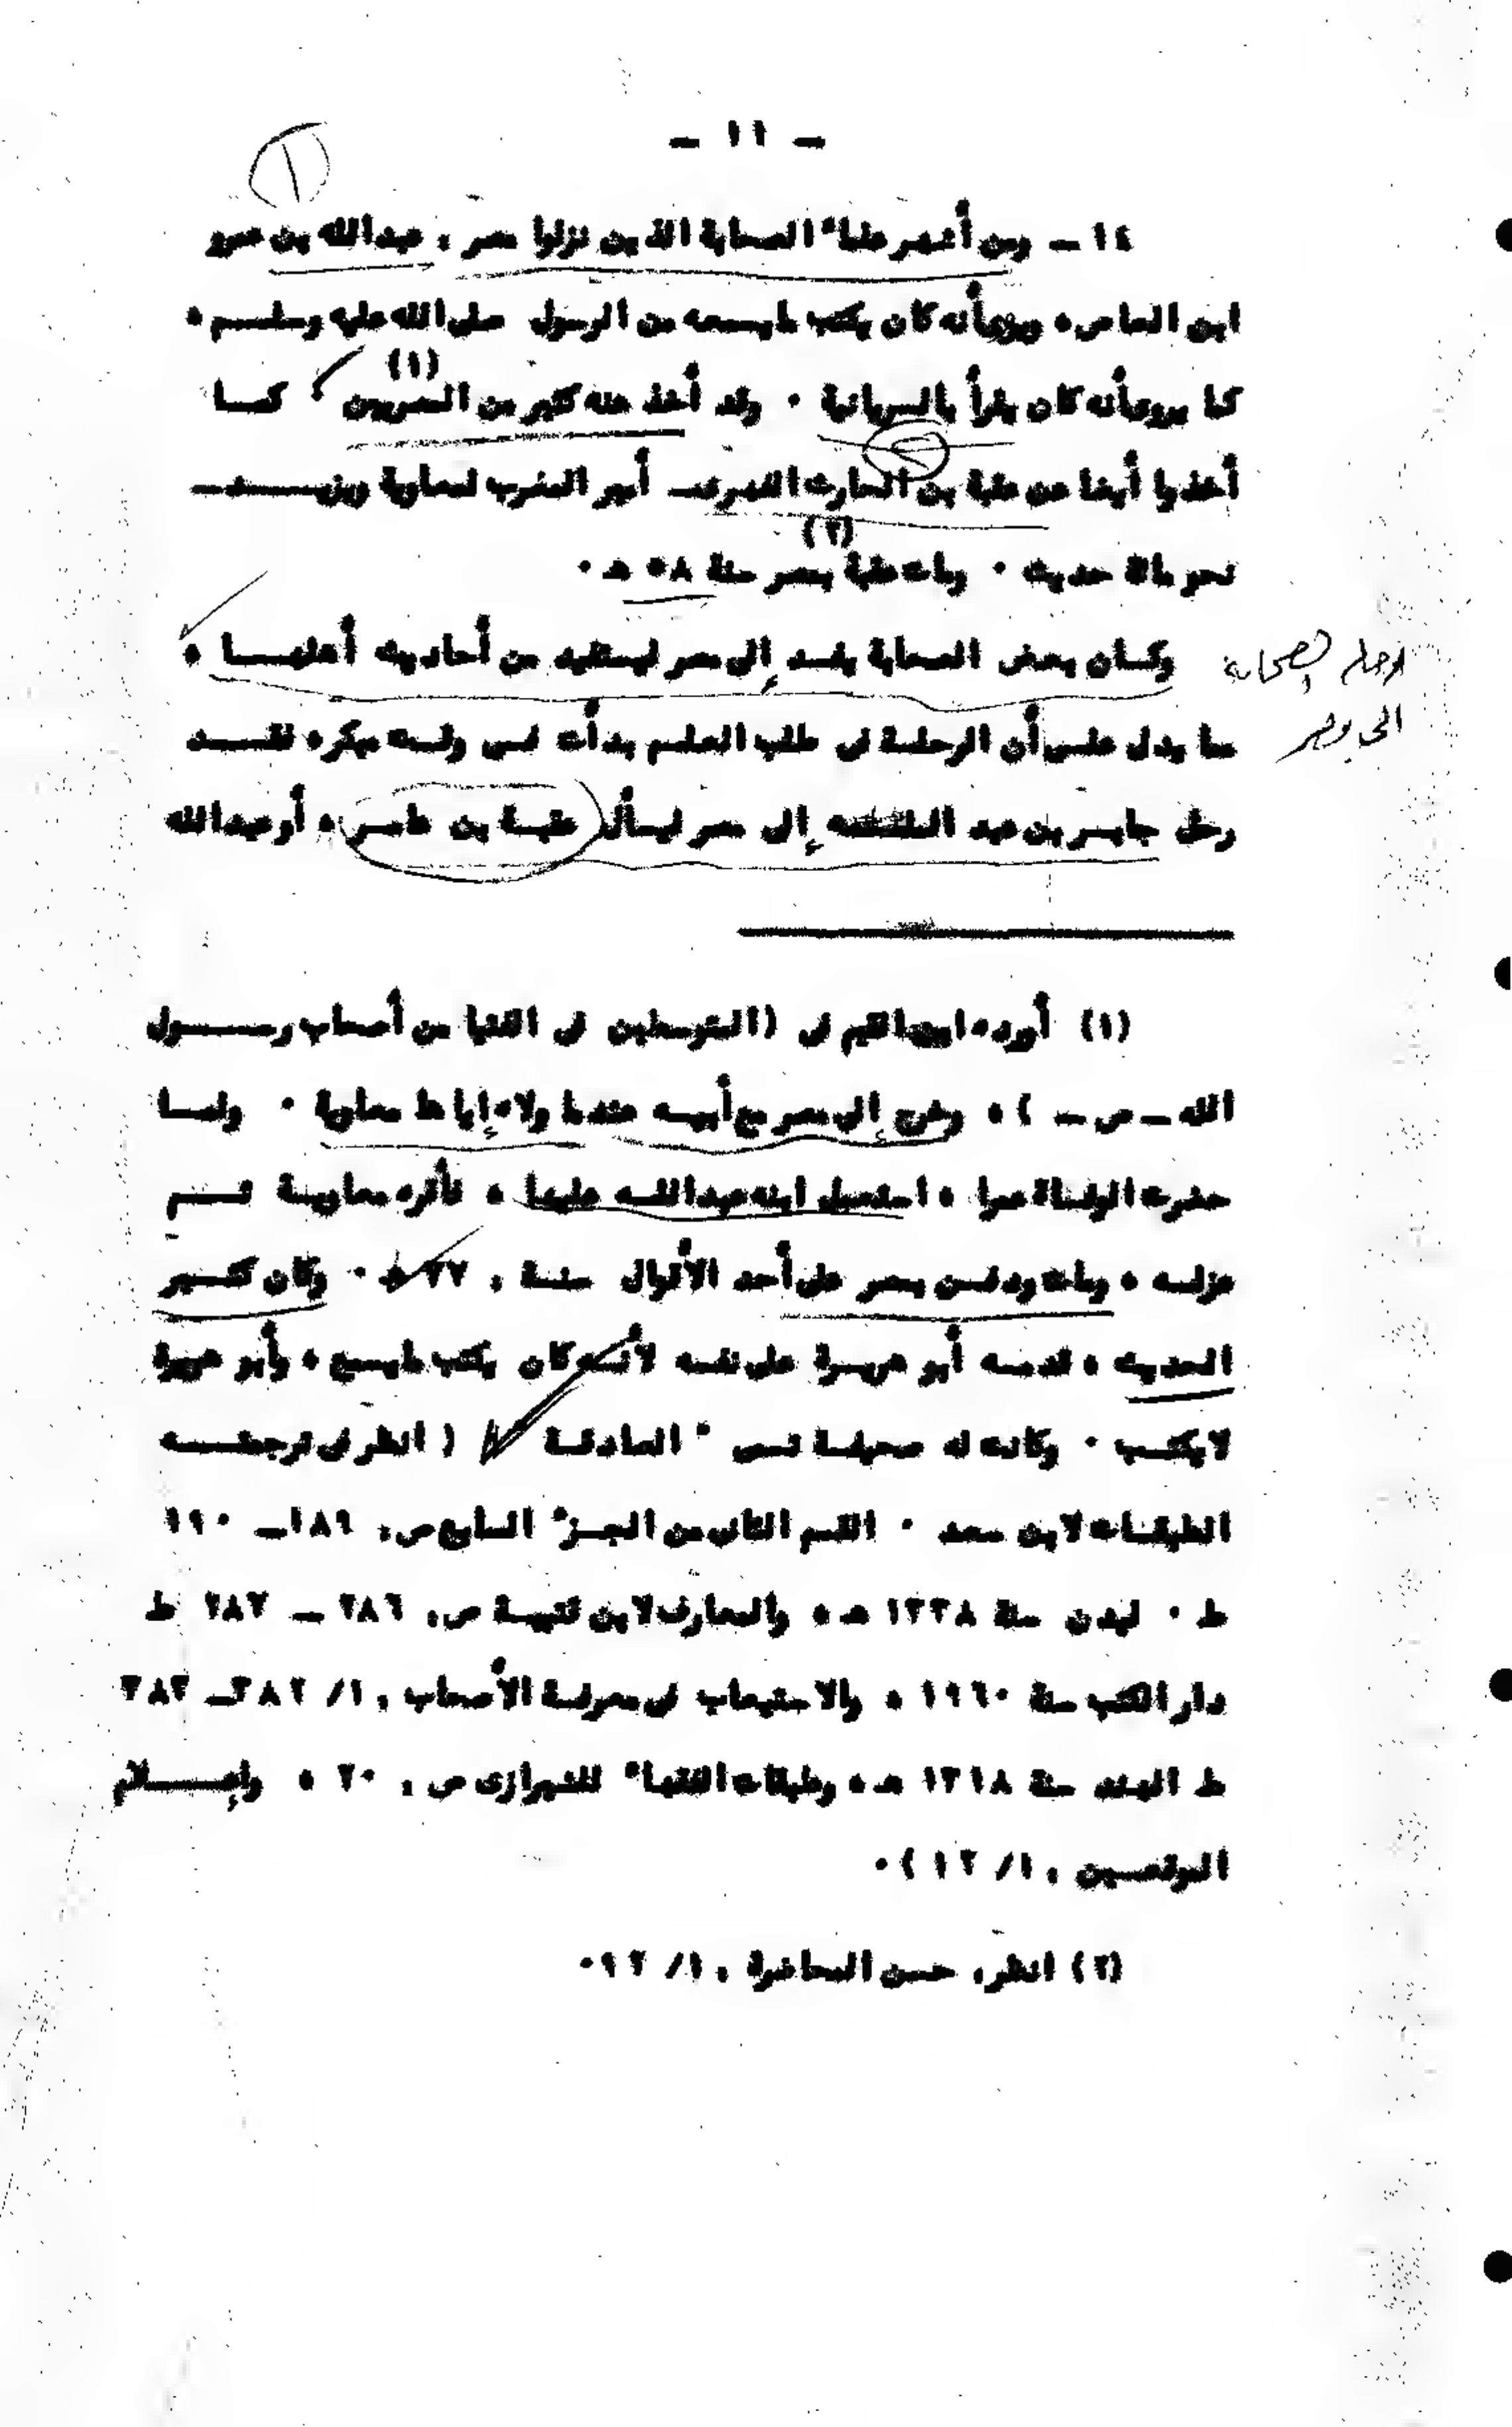 - ١١ -
١٤ - ومن أشهر علماء الصحابة الذين نزلوا مصر : عبدالله بن عمرو
ابن العاص ، ويروى أنه كان يكتب مايسمعه من الرسول صلى الله عليه وسلم ،
كما يروى أنه كان يقرأ بالسريانية . وقد أخذ عنه كثير من المصريين (١) ، كما
أخذوا أيضا عن عقبة بن الحارث الفهرى - أمير المغرب لمعاوية ويزيد -
نحو مائة حديث . ومات عقبة بمصر سنة ٥٨ هـ (٢) .
وكان بعض الصحابة يفد إلى مصر ليستفيد من أحاديث أهلها ،
مما يدل على أن الرحلة فى طلب العلم بدأت فى وقت مبكر ، فقد
رحل جابر بن عبد الله إلى مصر ليسأل عقبة بن عامر ، أو عبدالله
الصحابة
الى مصر
(١) أورده ابن القيم فى (المتوسطين فى الفتيا من أصحاب رسول
الله - ص - ) ، وخرج إلى مصر مع أبيه عندما ولاه إياها معاوية . ولما
حضرت الوفاة عمرا ، استعمل ابنه عبدالله عليها ، فأقره معاوية ثم
عزله ، ومات ودفن بمصر على أحد الأقوال سنة : ٧٧ هـ . وكان كثير
الحديث ، قدمه أبو هريرة على نفسه لأنه كان يكتب مايسمع ، وأبو هريرة
لايكتب . وكانت له صحيفة تسمى " الصادقة " ( انظر فى ترجمته
الطبقات لابن سعد . القسم الثانى من الجزء السابع ص: ١٨٩ - ١٩٠
ط . ليدن سنة ١٣٣٨ هـ ، والمعارف لابن قتيبة ص: ٢٨٦ - ٢٨٧ ط
دار الكتب سنة ١٩٦٠ ، والاستيعاب فى معرفة الأصحاب : ١/ ٣٨٢ - ٣٨٣
ط الهند سنة ١٣١٨ هـ ، وطبقات الفقهاء للشيرازى ص : ٢٠ ، وإعلام
الموقعين : ١/ ١٢ ) .
(٢) انظر: حسن المحاضرة : ١/ ٩٢ .